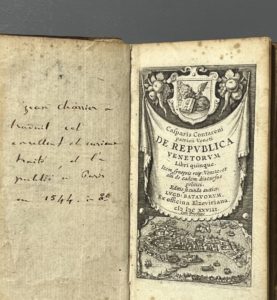 Jean Charrier a
traduit cet
excellent et curieux
traité, et l'a
publié a Paris
en 1544. in 8º
Casparis Contareni
patrici Veneti
DE REPVBLICA
VENETORVM
Libri quinque.
Item synopsis reip. Venetæ, et
alii de eadem discursus
politici.
Editio secunda auctior.
LVGD. BATAVORVM
Ex officina Elzeviriana
CIƆ IƆC XXVIII.